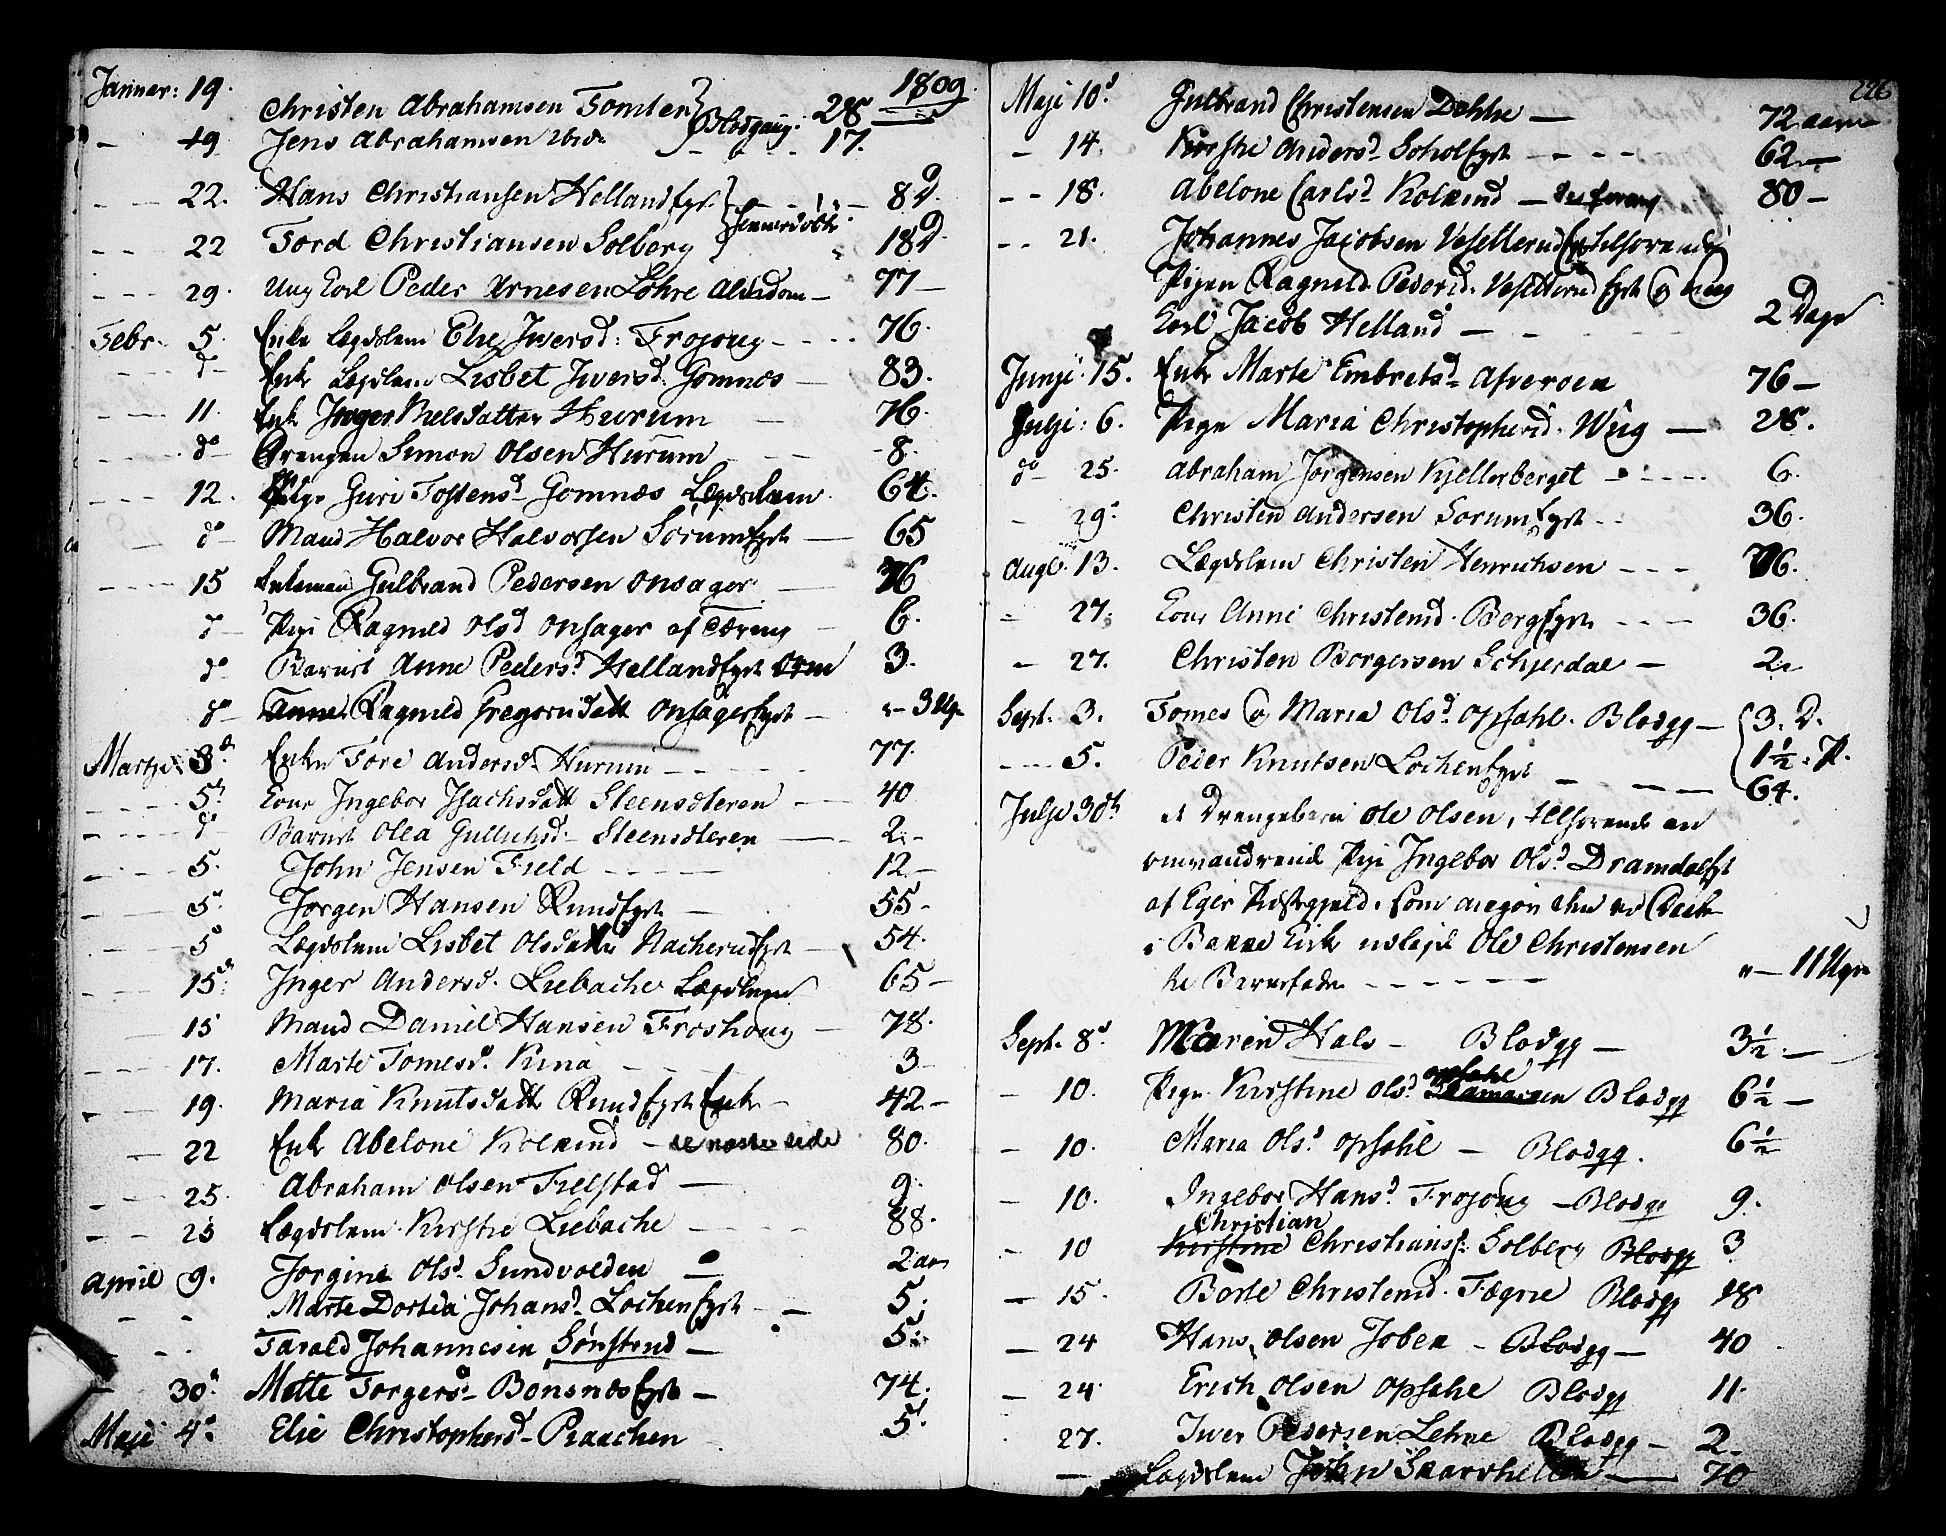 1809.
Januar: 19. Christen Abrahamsen Tomter } Blodgang: 28
— 19 Jens Abrahamsen - - - 17.
— — 22. Hans Christiansen Hellandeyet } - - - 8 D.
— — 22 Tord Christiansen Solberg } hiemmedøbte 18 D.
- - - 29. Ung Karl Peder Arnesen Løhre Alderdom — 77 —
Febr. 5. Enke Lægdslem Else Iversd: Frøjoug - - - - 76.
- - - d° Enke Lægdslem Lisbet Iversd. Gomnæs — 83.
- - - 11. Enke Inger Nielsdatter Hurum — 76.
- - - d° Drengen Simon Olsen Hurum - - - 8.
- - - 12. Pige Guri Tostensd. Gomnæs Lægdslem 64.
— d° Mand Halvor Halvorsen Sørumeyet — 65
- - - 15 Enkemand Gulbrand Pedersen Onsager — 76
d° Pige Ragnild Olsd. Onsager af Tæring — 6.
d° Barnet Anne Pedersd. Hellandeyet Orm 3.
d° Ragnild Gregorisdatt Onsagereyet — 3 Ug.
Martje 3d. Enke Tore Andersd. Hurum - - 77.
- - - 5t. Kone Ingebor Isachsdatt Steensæteren — 40
- - - d° Barnet Olea Gulichsd. Steensæteren — 2. -
- - - 5. John Jensen Field - - - - 12. -
- - - 5. Jørgen Hansen Rundeyet — 55 -
- - - 5 Lægdslem Lisbet Olsdatter Nacherudeyet — 54.
- - - 15d. Inger Andersd. Liebache Lægdslem 65 -
- - - 15 Mand Daniel Hansen Frøshoug — 78.
- - - 17. Marte Tomesd. Kina - - - 3
- - - 19. Maria Knutsdatt Rundeyet Enke — 42 -
— 22 Enke Abelone Kolkind — se næste side 80.
— 25. Abraham Olsen Fielstad — 9.
- - 25 Lægdslem Kirstie Liebache - - - 88.
April 9. Jorgine Olsd. Sundvolden — 2 aar
- - Marte Dortea Johansd. Løcheneyet — 5.
- - Tarald Johannesen Sønsterud — 5.
— 30d. Mette Torgersd. Bønsnæseyet — 74.
Maji 4d. Elie Christophersd. Braachen 5.
226
Maji 10d. Gulbrand Christensen Dehle — 72 aar
— 14. Kirstie Andersd. Scholeyet - - - - 62. —
- - 18. Abelone Carlsd. Kolkind — 80 —
- - 21. Johannes Jacobsen Vesetterud Tilforende
Pigen Ragnild Pedersd. Vesetterud eyet og Ung
Karl Jacob Helland — - 2 Dage
Junji 15. Enke Marte Embretsd. Afveroen 76 —
Julji: 6. Pige Maria Christophersd. Wiig — 28.
d° 25. Abraham Jørgensen Kjellerberget - - - 6.
- 29d. Christen Andersen Sørumeyet - - 36.
Augt. 13. Lægdslem Christen Henrichsen - - - 76.
- 27. Kone Anne Christensd. Bergeyet - - - 36.
— 27. Christen Borgersen Schjerdal — 2
Sept. 3. Tomes og Maria Olsd. Opsahl. Blodgg — { 3. D.
1½. D.
- - - 5. Peder Knutsen Løcheneyet — — 64.
Julji 30t. et Drengebarn Ole Olsen, tilhørende en
omvandrende Pige Ingebor Olsd. Dramdaleyet
af Eger Præstegjeld. som angav
i udlagt Ole Christensen
til Barnefader - - - - - - 11 Uger
Sept. 8d. Maren Hals - Blodgg — 3½ —
— 10. Pige Kirstine Olsd. Opsahl Blodgg 6½ —
— 10. Maria Olsd. Opsahl — Blodgg. 6½
— 10. Ingebor Hansd. Frøjoug — Blodgg 9.
- 10 Christian Christians: Solberg Blodgg 3
— 15. Borte Christensd. Fægrie Blodgg 18
— 24 Hans Olsen Joben - Blodgg — 40
— 24. Erich Olsen Opsahl Blodgg 11.
27. Iver Pedersen Lehne Blodgg — 2.
— Lægdslem John Skarshellen — 70